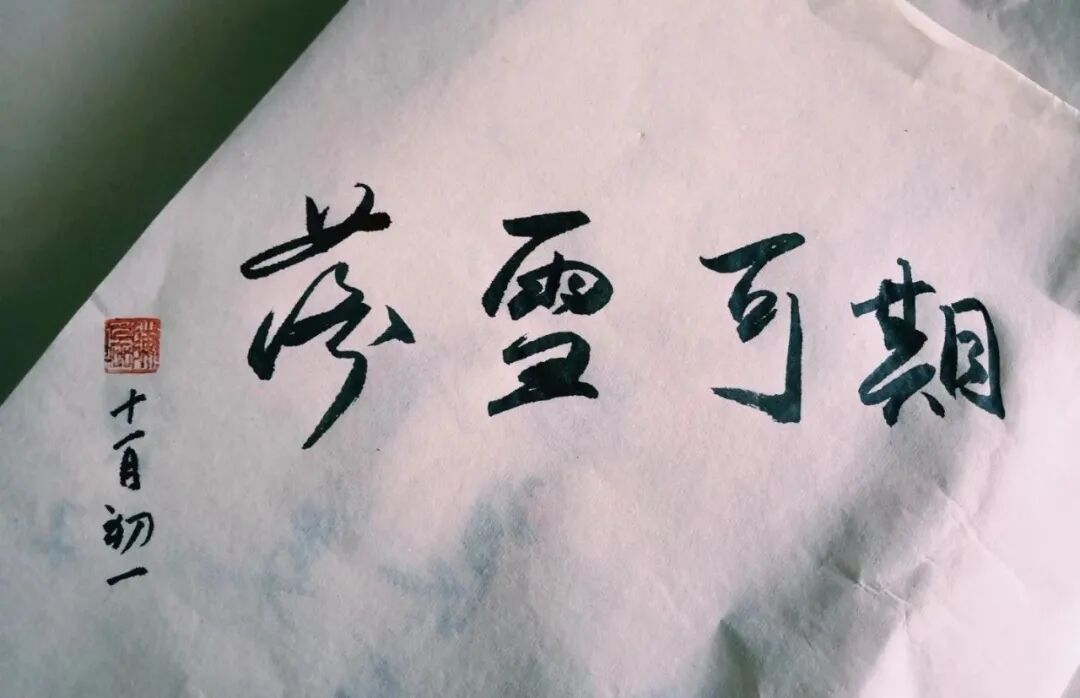 落雪可期
十一月初一